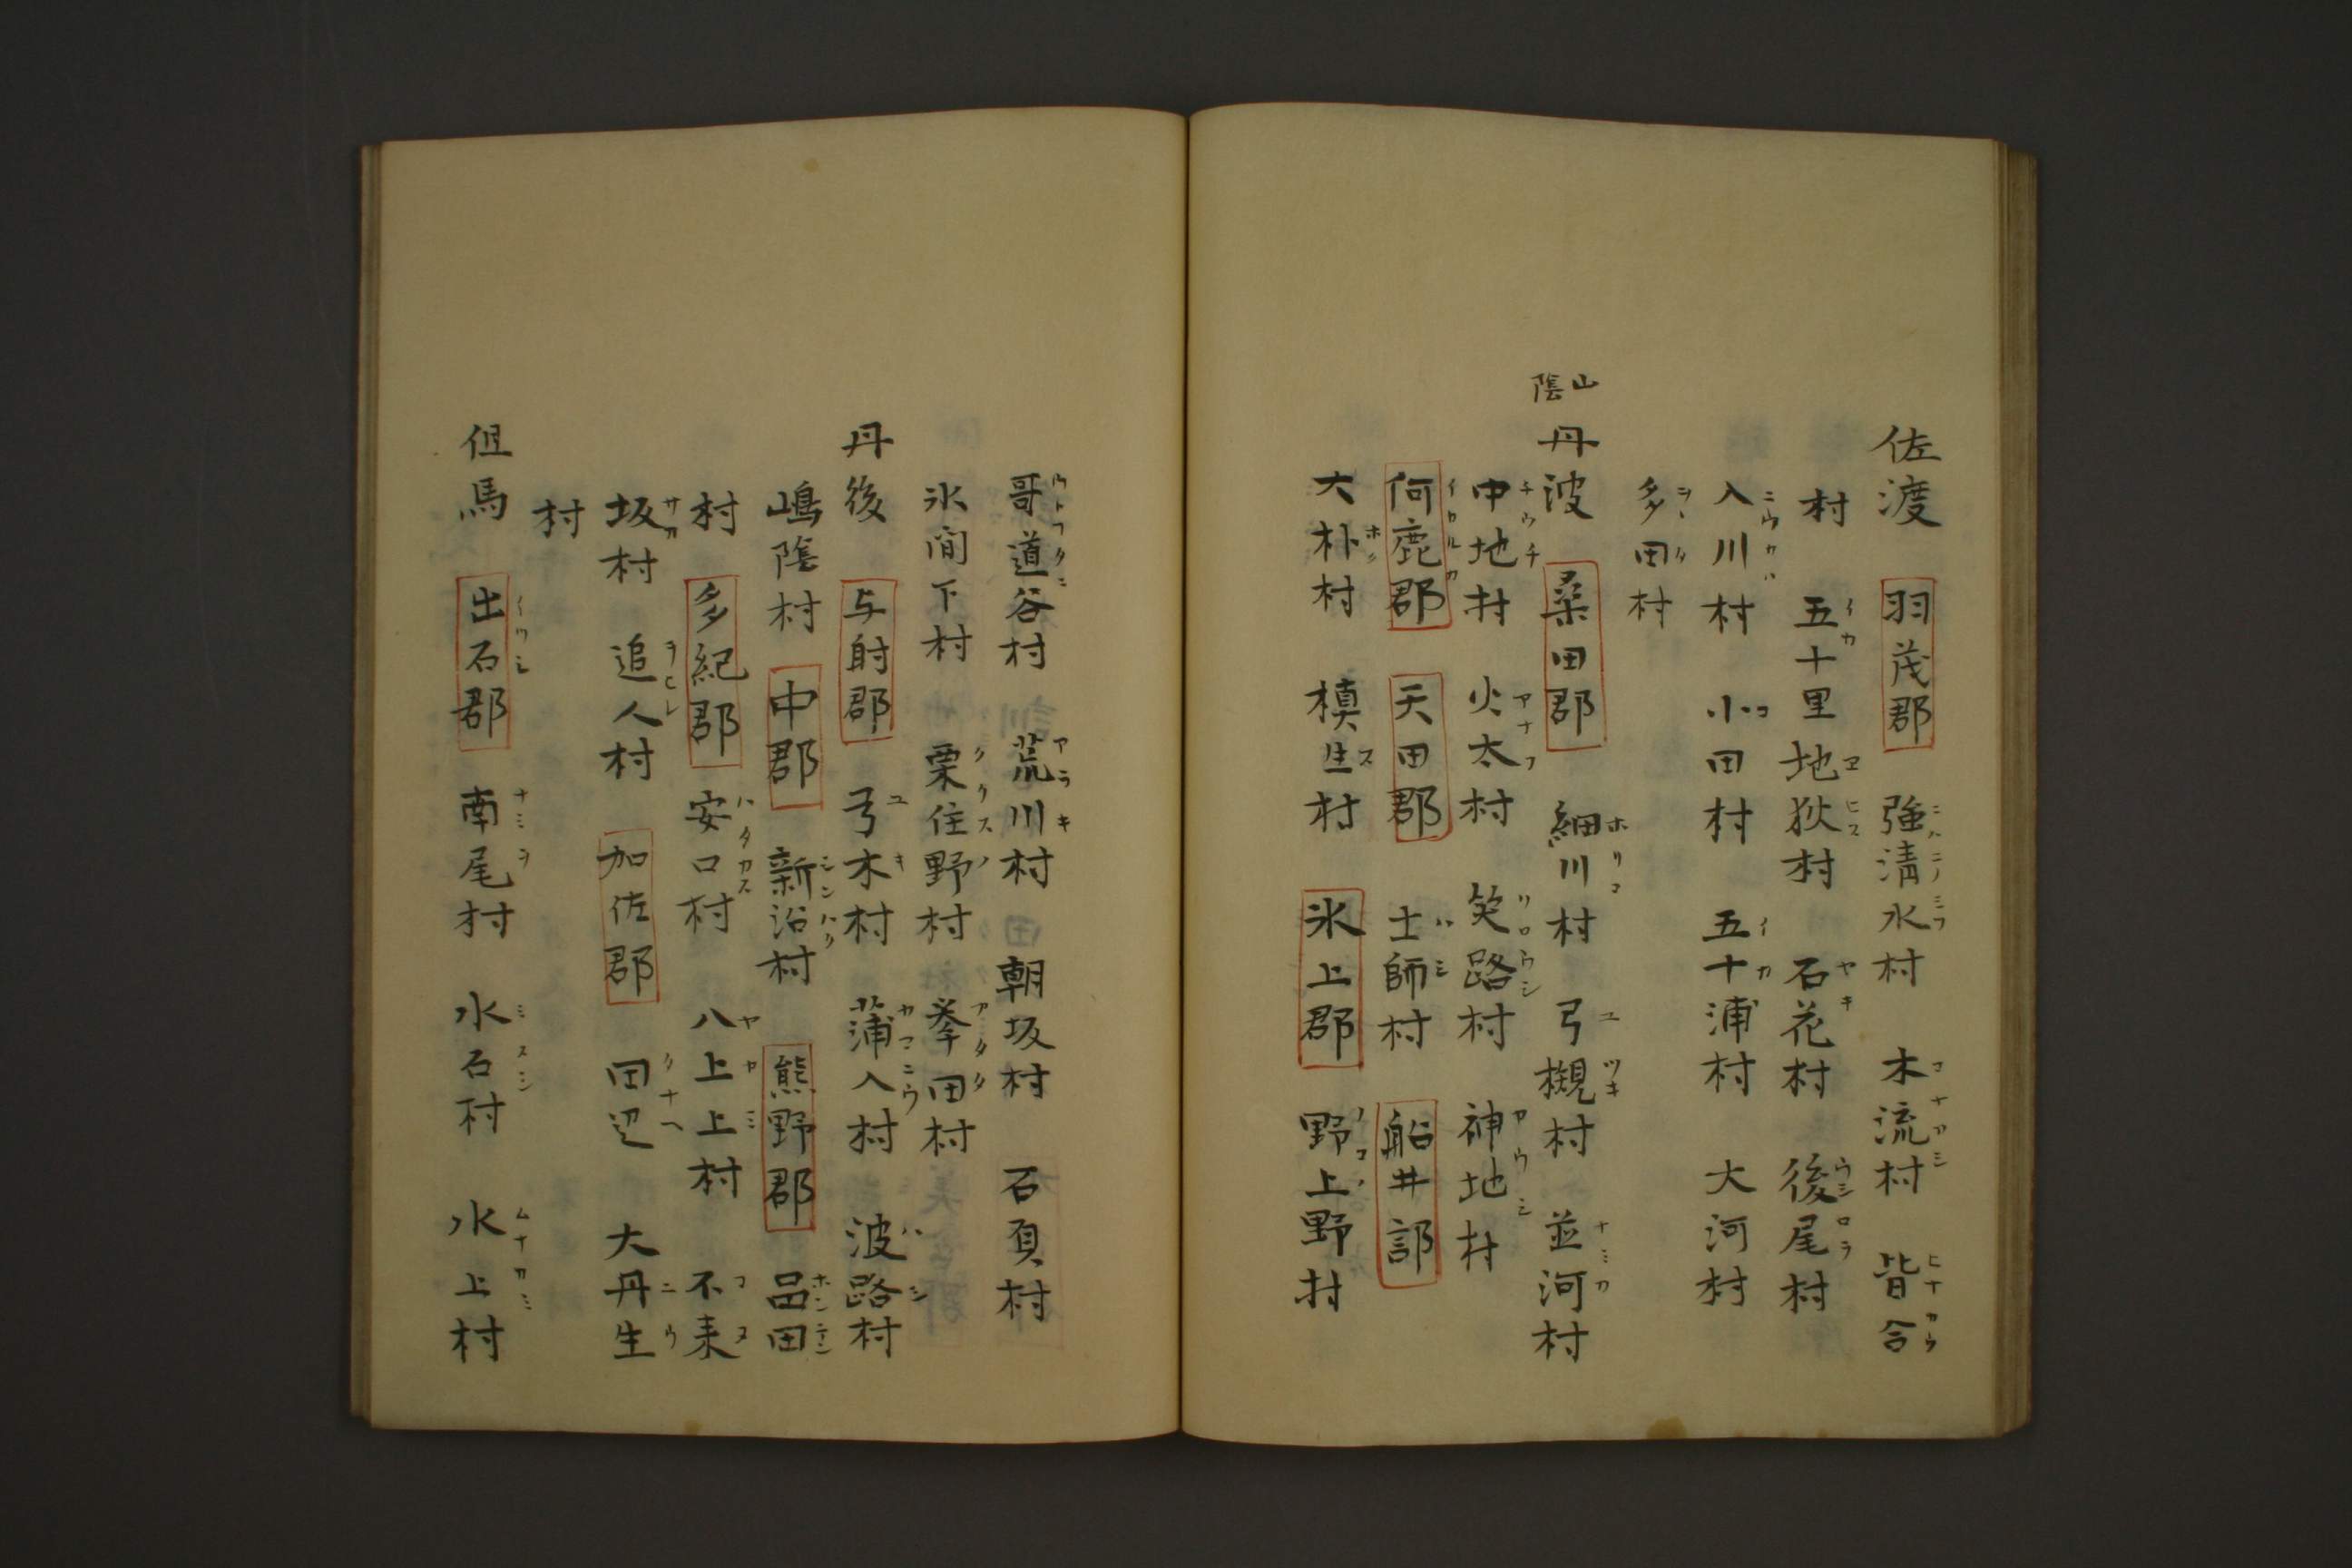 佐渡 羽茂郡 強清水村 木流村 皆合
村 五十里 地狄村 石花村 後尾村
入川村 小田村 五十浦村 大河村
多田村
山陰
丹波 桑田郡 細川村 弓槻村 並河村
中地村 火太村 笑路村 神地村
何鹿郡 天田郡 士師村 船井郡
大朴村 槙生村 氷上郡 野上野村
哥道谷村 荒川村 朝坂村 石負村
氷間下村 栗住野村 拳田村
丹後 与射郡 弓木村 蒲入村 波路村
嶋陰村 中郡 新治村 熊野郡 畐田
村 多紀郡 安口村 八上上村 不来
坂村 追入村 加佐郡 田辺 大丹生
村
但馬 出石郡 南尾村 水石村 水上村